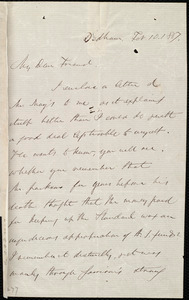 Dedham Feb 12. 1857.
My Dear Friend
I enclose a letter of
Mr May's to me as it explains
itself better than I could do with
a good deal
He wants to know, you will see,
whether you remember that
Mr Jackson for years before his
death thought that the money paid
for keeping up the Standard was an
injudicious appropriation of the funds.
I remember it distinctly,
mainly through